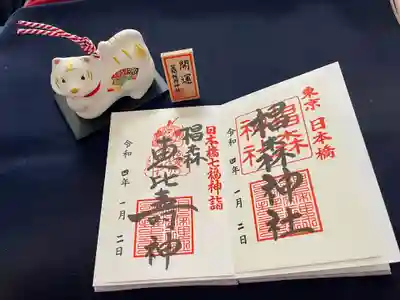 東京 日本橋
椙森神社
椙森神社
令和 四年 一月 二日
日本橋七福神詣
椙森
恵比寿神
令和 四年 一月 二日
開運